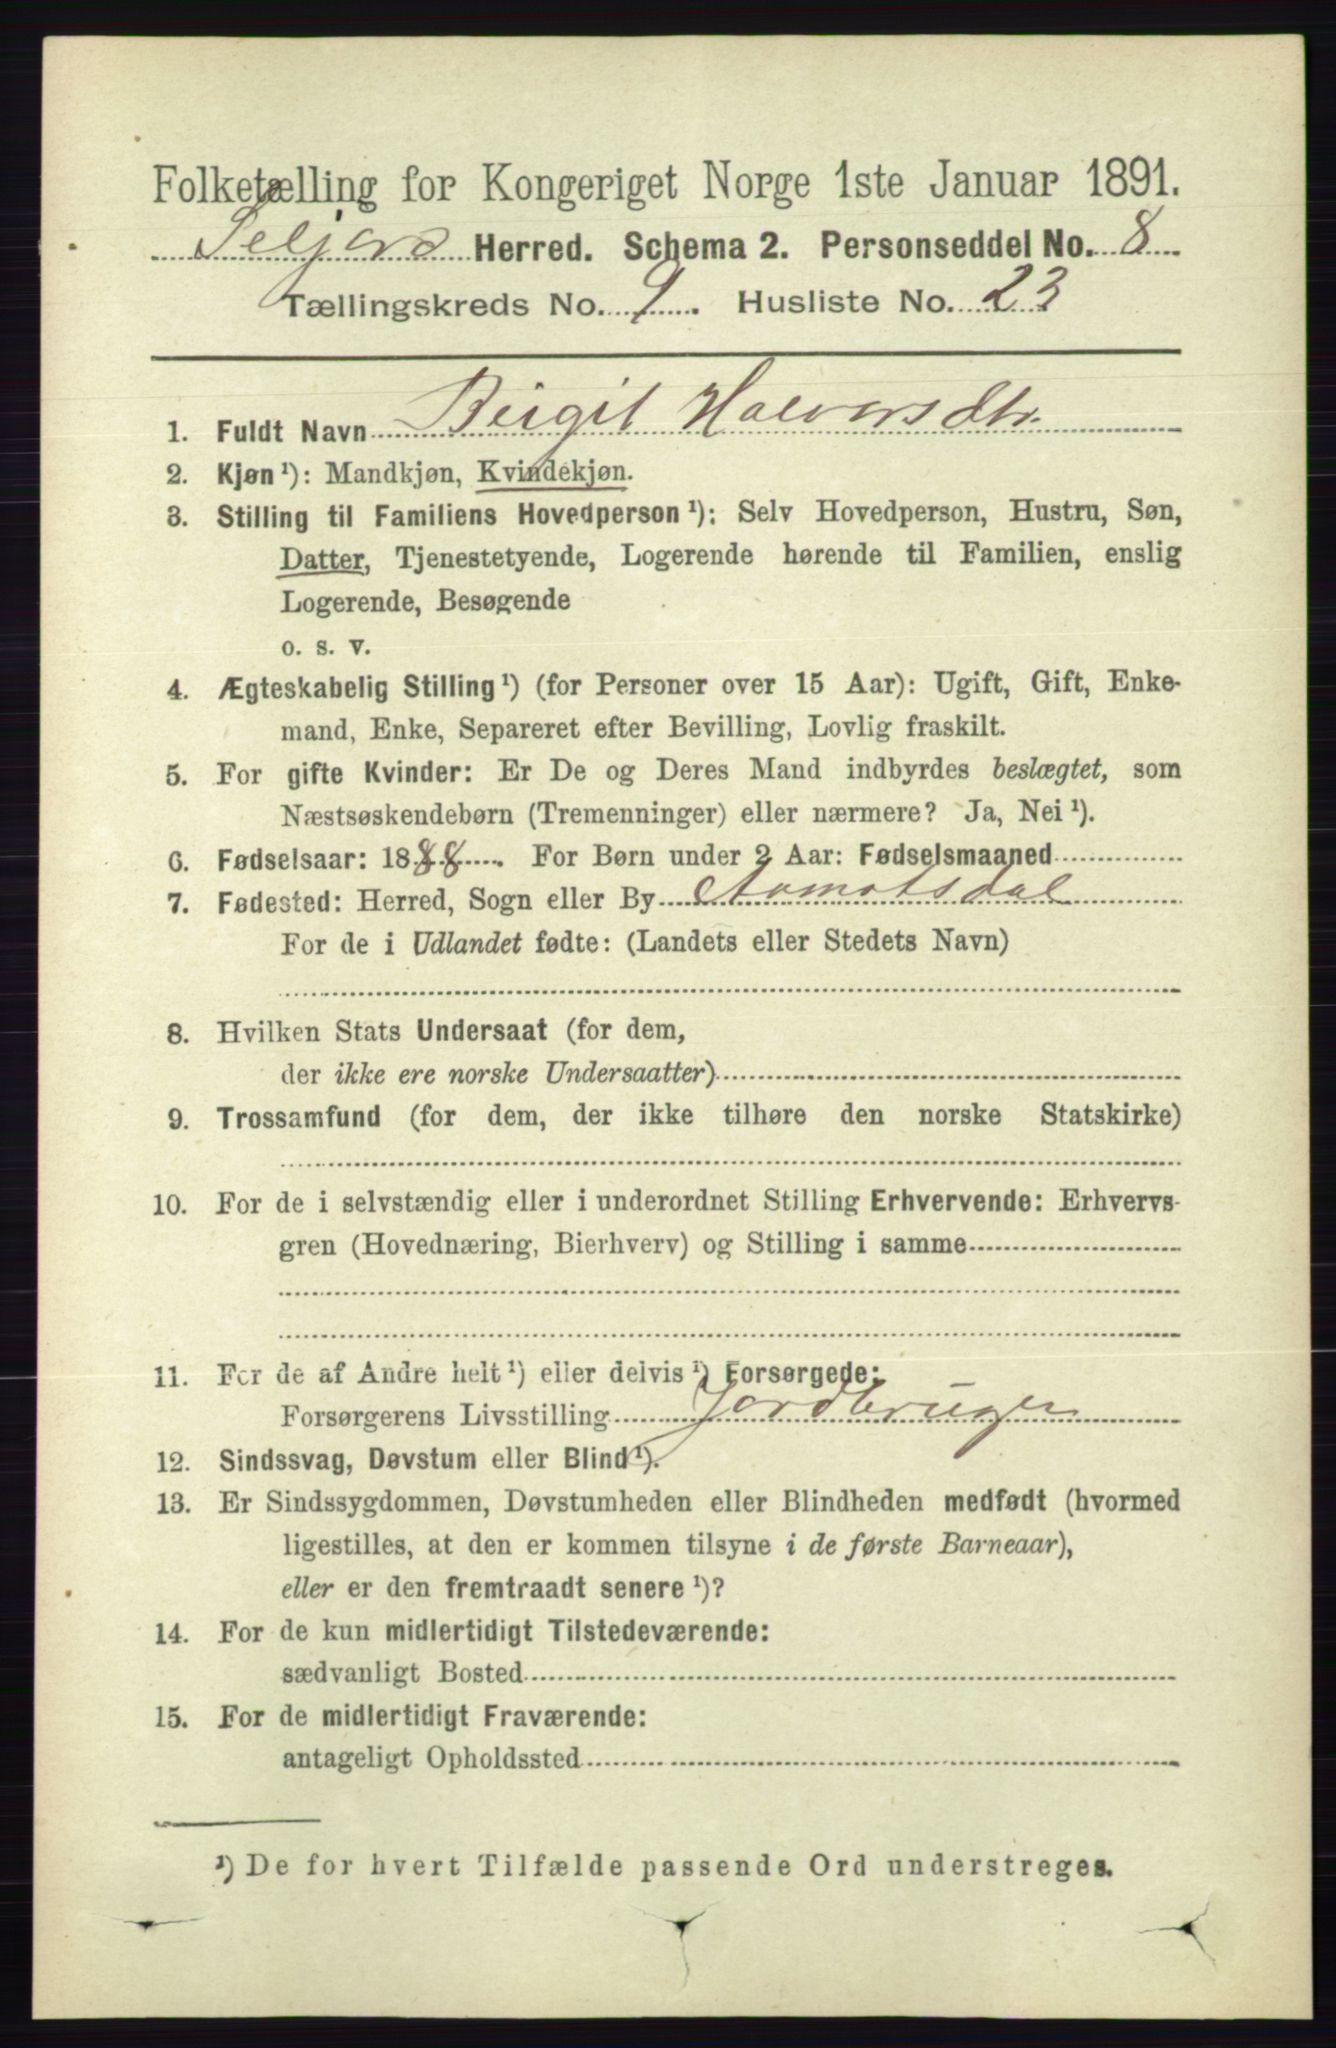 Folketælling for Kongeriget Norge 1ste Januar 1891.
Seljord Herred. Schema 2. Personseddel No. 8
Tællingskreds No. 9. Husliste No. 23
1. Fuldt Navn Birgit Halvorsdtr.
2. Kjøn¹): Mandkjøn, Kvindekjøn.
3. Stilling til Familiens Hovedperson¹): Selv Hovedperson, Hustru, Søn,
Datter, Tjenestetyende, Logerende hørende til Familien, enslig
Logerende, Besøgende
o. s. v.
4. Ægteskabelig Stilling¹) (for Personer over 15 Aar): Ugift, Gift, Enke-
mand, Enke, Separeret efter Bevilling, Lovlig fraskilt.
5. For gifte Kvinder: Er De og Deres Mand indbyrdes beslægtet, som
Næstsøskendebørn (Tremenninger) eller nærmere? Ja, Nei¹).
6. Fødselsaar: 1888. For Børn under 2 Aar: Fødselsmaaned
7. Fødested: Herred, Sogn eller By Aamotsdal
For de i Udlandet fødte: (Landets eller Stedets Navn)
8. Hvilken Stats Undersaat (for dem,
der ikke ere norske Undersaatter)
9. Trossamfund (for dem, der ikke tilhøre den norske Statskirke)
10. For de i selvstændig eller i underordnet Stilling Erhvervende: Erhvervs-
gren (Hovednæring, Bierhverv) og Stilling i samme
11. For de af Andre helt¹) eller delvis¹) Forsørgede:
Forsørgerens Livsstilling Jordbruger
12. Sindssvag, Døvstum eller Blind¹).
13. Er Sindssygdommen, Døvstumheden eller Blindheden medfødt (hvormed
ligestilles, at den er kommen tilsyne i de første Barneaar),
eller er den fremtraadt senere¹)?
14. For de kun midlertidigt Tilstedeværende:
sædvanligt Bosted
15. For de midlertidigt Fraværende:
antageligt Opholdssted
¹) De for hvert Tilfælde passende Ord understreges.